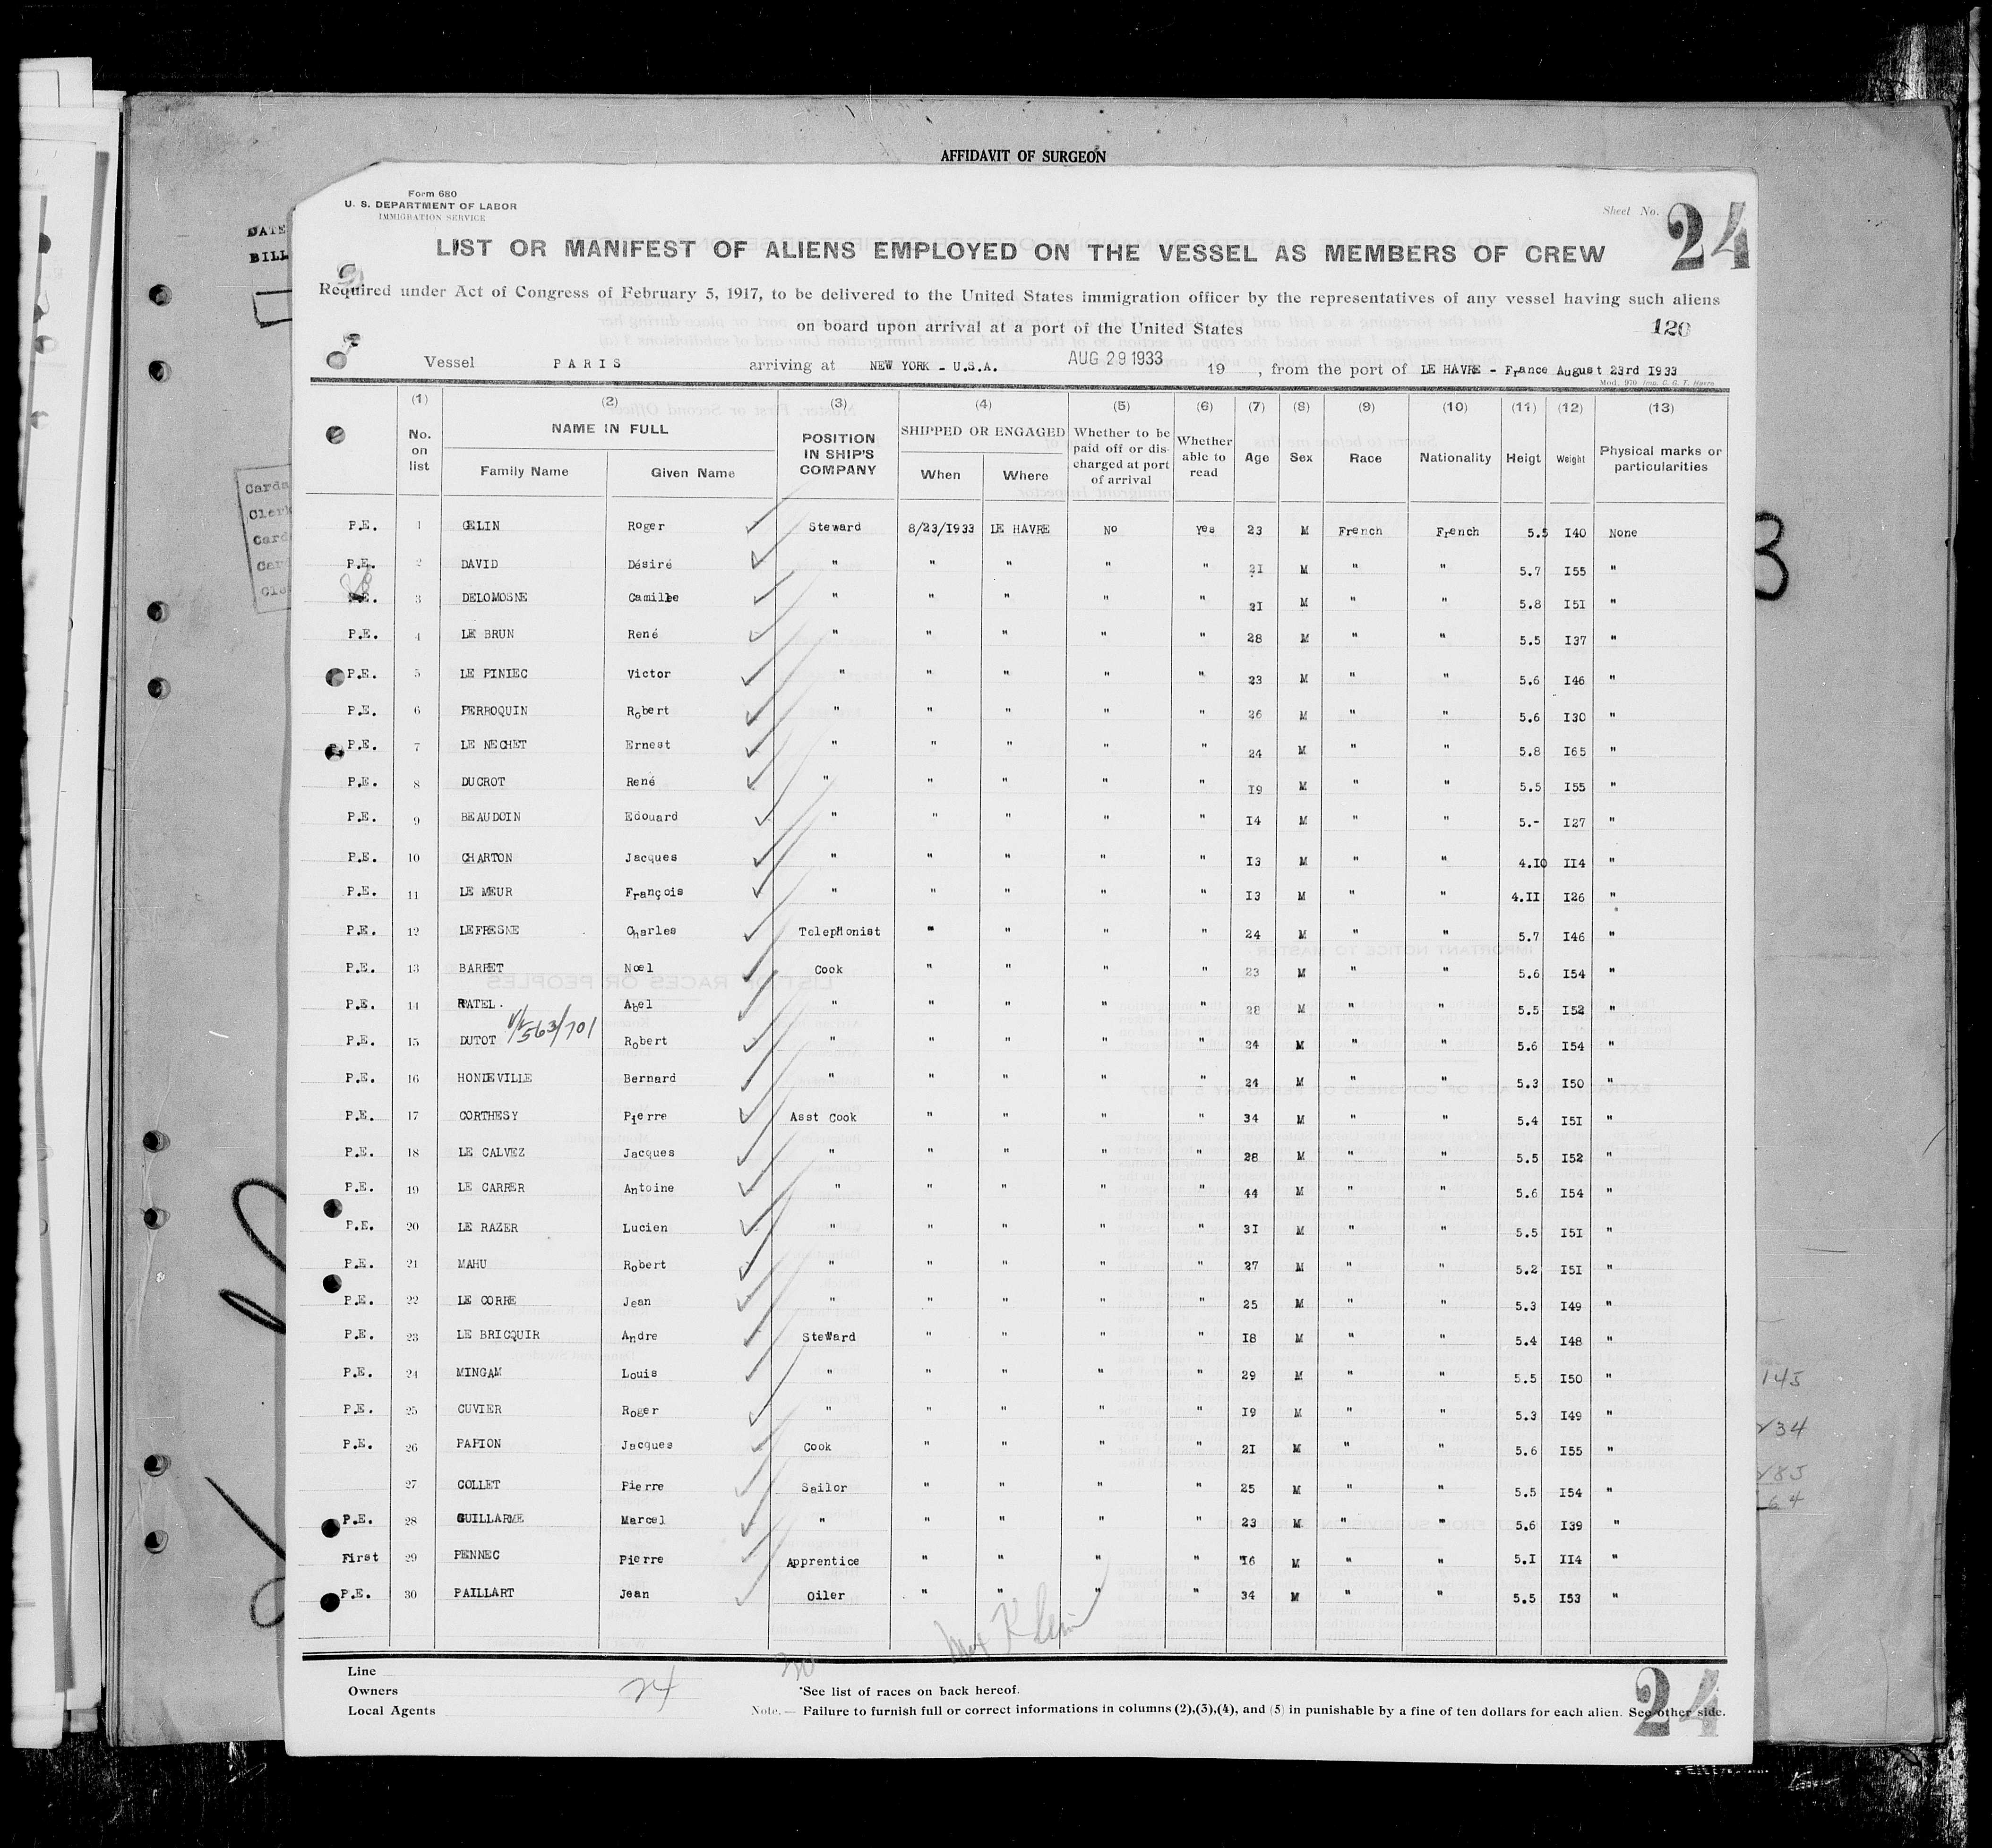 AFFIDAVIT OF SURGEON
Form 680
U. S. DEPARTMENT OF LABOR
IMMIGRATION SERVICE
Sheet No. 24
DATE
BILL
LIST OR MANIFEST OF ALIENS EMPLOYED ON THE VESSEL AS MEMBERS OF CREW
Required under Act of Congress of February 5, 1917, to be delivered to the United States immigration officer by the representatives of any vessel having such aliens
on board upon arrival at a port of the United States
120
Vessel PARIS arriving at NEW YORK - U.S.A. AUG 29 1933 19 , from the port of LE HAVRE - France August 23rd I933
Mod. 970 Imp. C. G. T. Havre
(1) (2) (3) (4) (5) (6) (7) (8) (9) (10) (11) (12) (13)
No. on list NAME IN FULL Family Name Given Name POSITION IN SHIP'S COMPANY SHIPPED OR ENGAGED When Where Whether to be paid off or discharged at port of arrival Whether able to read Age Sex Race Nationality Heigt Weight Physical marks or particularities
P.E. 1 GELIN Roger Steward 8/23/I933 LE HAVRE No yes 23 M French French 5.5 I40 None
P.E. 2 DAVID Désiré " " " " " 2I M " " 5.7 I55 "
P.E. 3 DELOMOSNE Camille " " " " " 2I M " " 5.8 I5I "
P.E. 4 LE BRUN René " " " " " 28 M " " 5.5 I37 "
P.E. 5 LE PINIEC Victor " " " " " 23 M " " 5.6 I46 "
P.E. 6 PERROQUIN Robert " " " " " 26 M " " 5.6 I30 "
P.E. 7 LE NECHET Ernest " " " " " 24 M " " 5.8 I65 "
P.E. 8 DUCROT René " " " " " I9 M " " 5.5 I55 "
P.E. 9 BEAUDOIN Edouard " " " " " I4 M " " 5.- I27 "
P.E. 10 CHARTON Jacques " " " " " I3 M " " 4.I0 II4 "
P.E. 11 LE MEUR François " " " " " I3 M " " 4.II I26 "
P.E. 12 LEFRESNE Charles Telephonist " " " " 24 M " " 5.7 I46 "
P.E. 13 BARBET Noel Cook " " " " 23 M " " 5.6 I54 "
P.E. 14 RATEL. Abel " " " " " 28 M " " 5.5 I52 "
563/701
P.E. 15 DUTOT Robert " " " " " 24 M " " 5.6 I54 "
P.E. 16 HONDEVILLE Bernard " " " " " 24 M " " 5.3 I50 "
P.E. 17 CORTHESY Pierre Asst Cook " " " " 34 M " " 5.4 I5I "
P.E. 18 LE CALVEZ Jacques " " " " " 28 M " " 5.5 I52 "
P.E. 19 LE CARRER Antoine " " " " " 44 M " " 5.6 I54 "
P.E. 20 LE RAZER Lucien " " " " " 3I M " " 5.5 I5I "
P.E. 21 MAHU Robert " " " " " 27 M " " 5.2 I5I "
P.E. 22 LE CORRE Jean " " " " " 25 M " " 5.3 I49 "
P.E. 23 LE BRICQUIR Andre Steward " " " " I8 M " " 5.4 I48 "
P.E. 24 MINGAM Louis " " " " " 29 M " " 5.5 I50 "
P.E. 25 CUVIER Roger " " " " " I9 M " " 5.3 I49 "
P.E. 26 PAPION Jacques Cook " " " " 2I M " " 5.6 I55 "
27 COLLET Pierre Sailor " " " " 25 M " " 5.5 I54 "
P.E. 28 GUILLARME Marcel " " " " " 23 M " " 5.6 I39 "
First 29 PENNEC Pierre Apprentice " " " " I6 M " " 5.I II4 "
P.E. 30 PAILLART Jean Oiler " " " " 34 M " " 5.5 I53 "
Max Klein
Line
Owners
Local Agents
24
*See list of races on back hereof.
Note. — Failure to furnish full or correct informations in columns (2),(3),(4), and (5) in punishable by a fine of ten dollars for each alien. See other side.
24